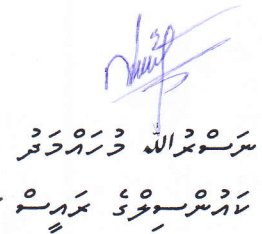 ނަސްރުﷲ މުހައްމަދު
ކައުންސިލްގެ ރައީސް